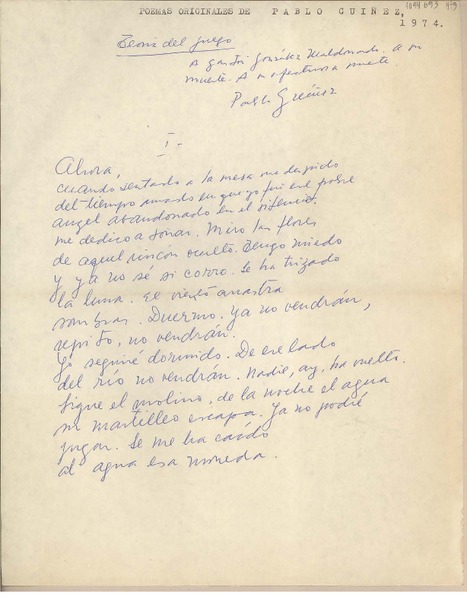 POEMAS ORIGINALES DE PABLO GUIÑEZ,
1974.
Teoría del juego
A González Maldonado. A mi
muerte. A muerte.
Pablo Guíñez
-I-
Ahora,
cuando sentado a la mesa me despido
del tiempo amado en que yo fui ese pobre
angel abandonado en el silencio,
me dedico a soñar. Miro las flores
de aquel rincón oculto. Tengo miedo
y ya no sé si corro. Se ha trizado
la luna. El viento arrastra
sombras. Duermo. Ya no vendrán,
repito, no vendrán.
Yo seguiré dormido. De ese lado
del río no vendrán. Nadie, ay, ha vuelto.
Sigue el molino, de la noche el agua
su martilleo escapa. Ya no podré
jugar. Se me ha caído
al agua esa moneda.